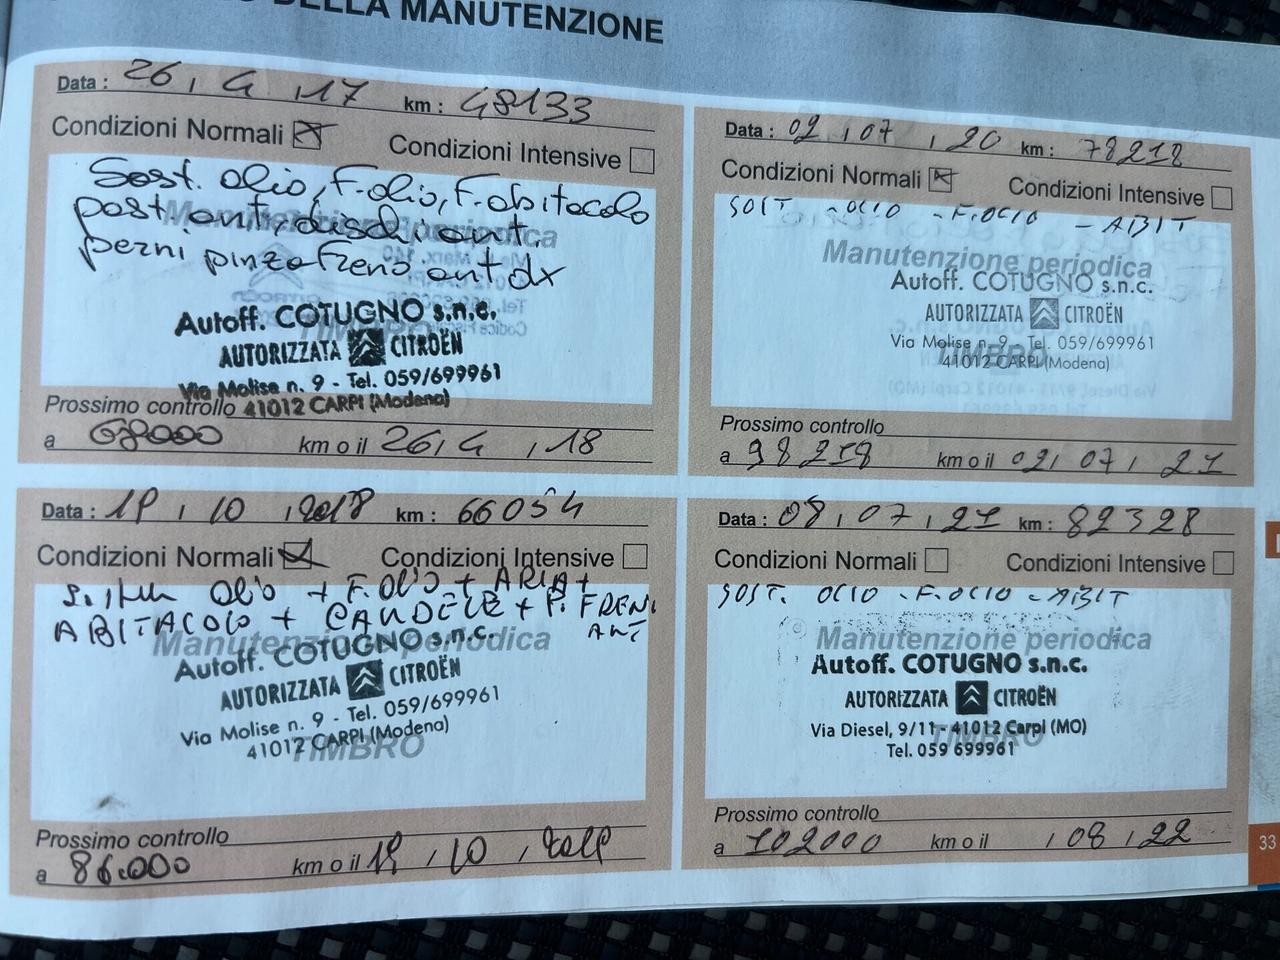 DELLA MANUTENZIONE
Data : 26 , 4 , 17 km : 48133
Condizioni Normali Condizioni Intensive
Sost. olio, F.olio, F.abitacolo
past ant, dischi ant.
perni pinza freno ant dx
Manutenzione periodica
Autoff. COTUGNO s.n.c.
AUTORIZZATA CITROËN
TIMBRO
Via Molise n. 9 - Tel. 059/699961
41012 CARPI (Modena)
Prossimo controllo
a 68000 km o il 26, 4 , 18
Data : 02 , 07 , 20 km : 78218
Condizioni Normali Condizioni Intensive
SOST - OLIO - F.OLIO - ABIT
Manutenzione periodica
Autoff. COTUGNO s.n.c.
AUTORIZZATA CITROËN
Via Molise n. 9 - Tel. 059/699961
TIMBRO
41012 CARPI (Modena)
Prossimo controllo
a 98218 km o il 02, 07, 21
Data : 19 , 10 , 2018 km : 66054
Condizioni Normali Condizioni Intensive
OLIO + F. OLIO + ARIA +
ABITACOLO + CANDELE + P. FRENI
ANT
Manutenzione periodica
Autoff. COTUGNO s.n.c.
AUTORIZZATA CITROËN
Via Molise n. 9 - Tel. 059/699961
41012 CARPI (Modena)
TIMBRO
Prossimo controllo
a 86.000 km o il 19 , 10 , 2019
Data : 08 , 07 , 21 km : 82328
Condizioni Normali Condizioni Intensive
SOST. OLIO - F.OLIO - ABIT
Manutenzione periodica
Autoff. COTUGNO s.n.c.
AUTORIZZATA CITROËN
Via Diesel, 9/11 - 41012 Carpi (MO)
TIMBRO
Tel. 059 699961
Prossimo controllo
a 102000 km o il , 08 , 22
33